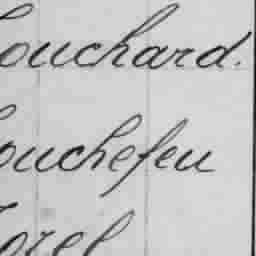 ouchard.
ouchefeu
orel